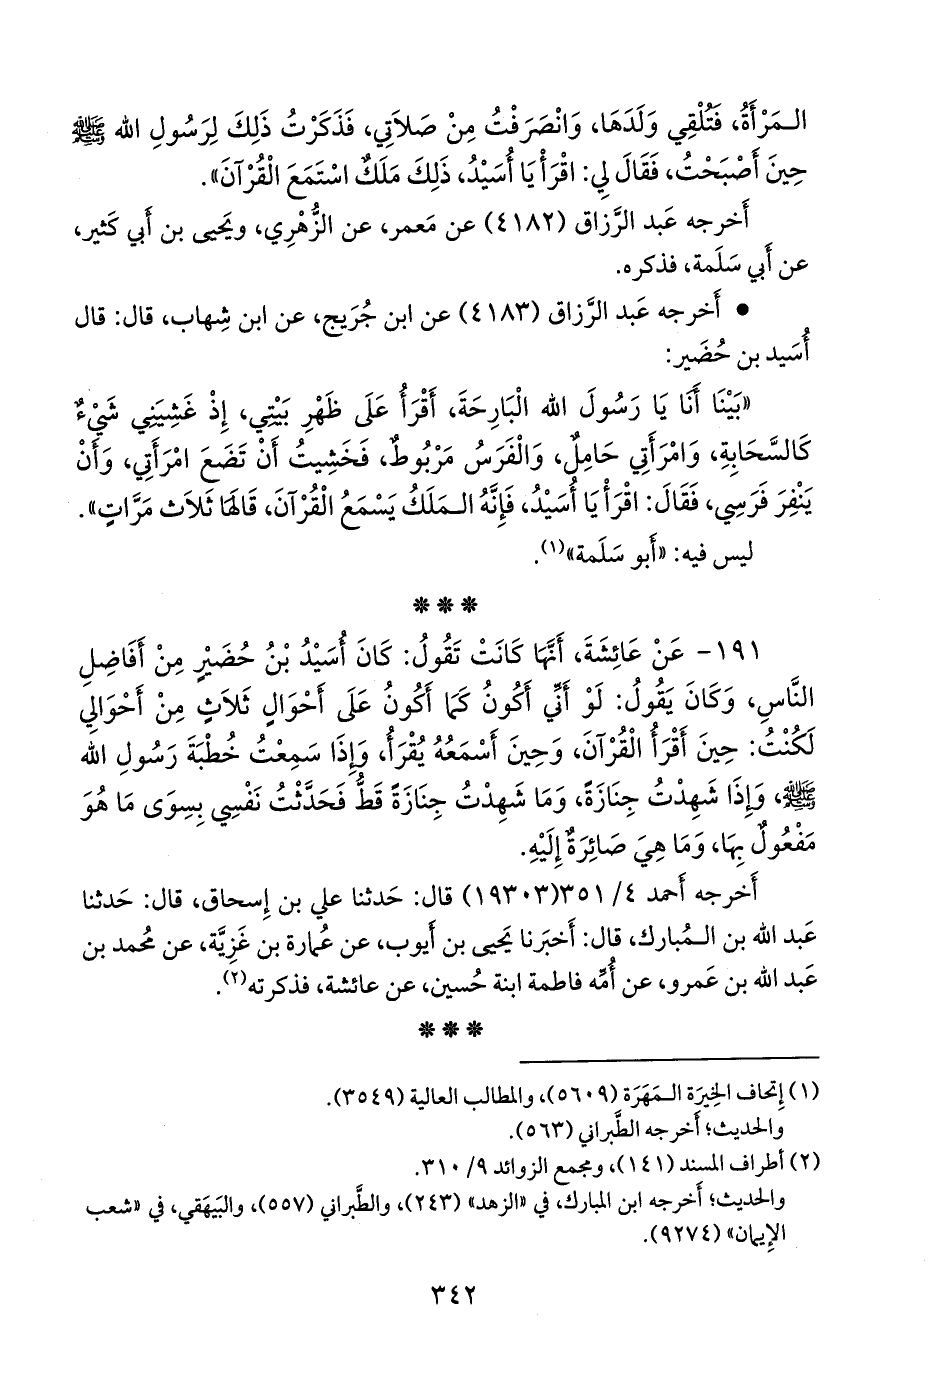 الـمَرْأَةُ، فَتُلْقِي وَلَدَهَا، وَانْصَرَفْتُ مِنْ صَلَاتِي، فَذَكَرْتُ ذَلِكَ لِرَسُولِ الله ﷺ
حِينَ أَصْبَحْتُ، فَقَالَ لِي: اقْرَأْ يَا أُسَيْدُ، ذَلِكَ مَلَكٌ اسْتَمَعَ الْقُرْآنَ».
أَخرجه عَبد الرَّزاق (٤١٨٢) عن مَعمر، عن الزُّهْرِي، ويَحيى بن أَبي كَثير،
عن أَبي سَلَمة، فذكره.
• أَخرجه عَبد الرَّزاق (٤١٨٣) عن ابن جُرَيج، عن ابن شِهاب، قال: قال
أُسَيد بن حُضَير:
«بَيْنَا أَنَا يَا رَسُولَ الله الْبَارِحَةَ، أَقْرَأُ عَلَى ظَهْرِ بَيْتِي، إِذْ غَشِيَنِي شَيْءٌ
كَالسَّحَابِةِ، وَامْرَأَتِي حَامِلٌ، وَالْفَرَسُ مَرْبُوطٌ، فَخَشِيتُ أَنْ تَضَعَ امْرَأَتِي، وَأَنْ
يَنْفِرَ فَرَسِي، فَقَالَ: اقْرَأْ يَا أُسَيْدُ، فَإِنَّهُ الـمَلَكُ يَسْمَعُ الْقُرْآنَ، قَالَهَا ثَلَاثَ مَرَّاتٍ».
ليس فيه: «أَبو سَلَمة»(١).
* * *
١٩١- عَنْ عَائِشَةَ، أَنَّهَا كَانَتْ تَقُولُ: كَانَ أُسَيْدُ بْنُ حُضَيْرٍ مِنْ أَفَاضِلِ
النَّاسِ، وَكَانَ يَقُولُ: لَوْ أَنِّي أَكُونُ كَمَا أَكُونُ عَلَى أَحْوَالٍ ثَلَاثٍ مِنْ أَحْوَالِي
لَكُنْتُ: حِينَ أَقْرَأُ الْقُرْآنَ، وَحِينَ أَسْمَعُهُ يُقْرَأُ، وَإِذَا سَمِعْتُ خُطْبَةَ رَسُولِ الله
ﷺ، وَإِذَا شَهِدْتُ جِنَازَةً، وَمَا شَهِدْتُ جِنَازَةً قَطُّ فَحَدَّثْتُ نَفْسِي بِسِوَى مَا هُوَ
مَفْعُولٌ بِهَا، وَمَا هِيَ صَائِرَةٌ إِلَيْهِ.
أَخرجه أَحمد ٤/ ٣٥١(١٩٣٠٣) قال: حَدثنا علي بن إِسحاق، قال: حَدثنا
عَبد الله بن الـمُبارك، قال: أَخبَرنا يَحيى بن أَيوب، عن عُمارة بن غَزِيَّة، عن مُحمد بن
عَبد الله بن عَمرو، عن أُمِّه فاطمة ابنة حُسين، عن عائشة، فذكرته(٢).
* * *
(١) إِتحاف الخِيرَة الـمَهَرَة (٥٦٠٩)، والمطالب العالية (٣٥٤٩).
والحديث؛ أَخرجه الطَّبراني (٥٦٣).
(٢) أطراف المسند (١٤١)، ومجمع الزوائد ٩/ ٣١٠.
والحديث؛ أَخرجه ابن المبارك، في «الزهد» (٢٤٣)، والطَّبراني (٥٥٧)، والبَيهَقي، في «شعب
الإِيمان» (٩٢٧٤).
٣٤٢